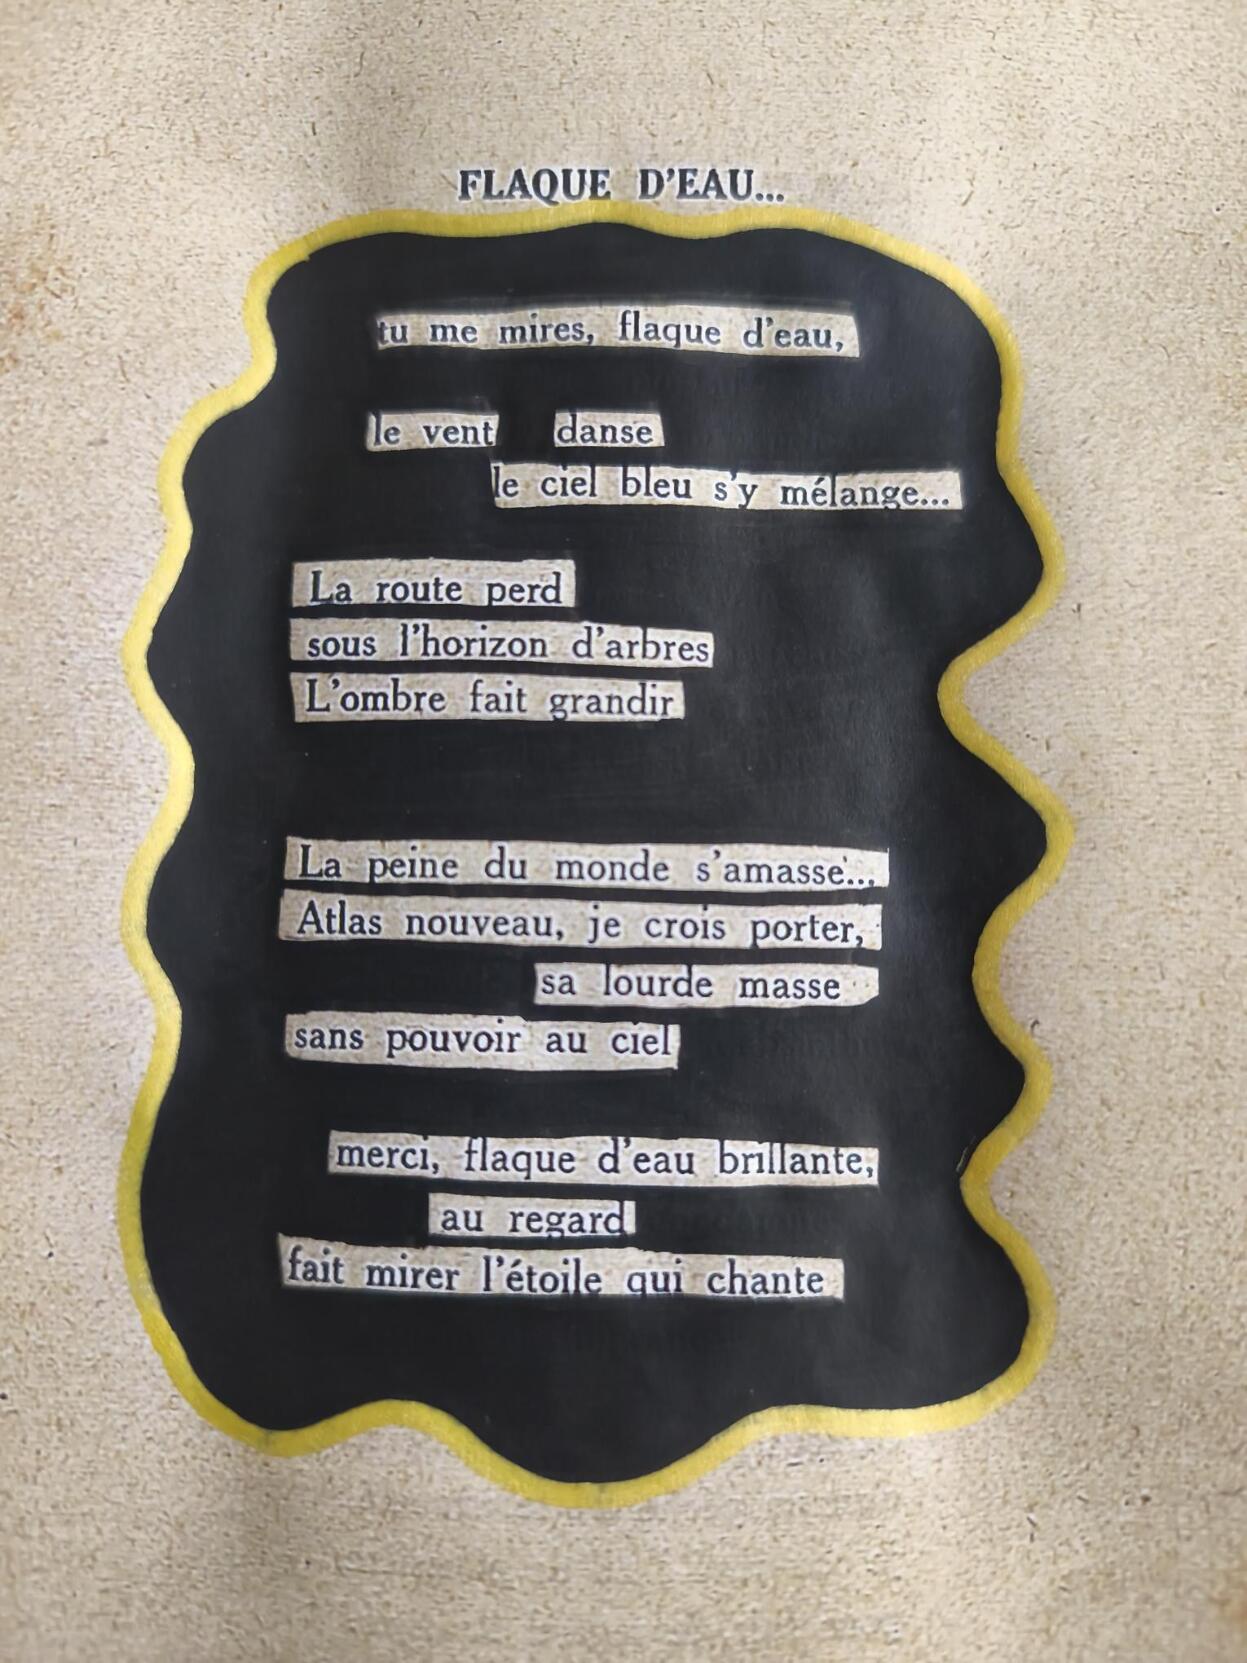 FLAQUE D'EAU...
tu me mires, flaque d'eau,
le vent danse
le ciel bleu s'y mélange...
La route perd
sous l'horizon d'arbres
L'ombre fait grandir
La peine du monde s'amasse...
Atlas nouveau, je crois porter,
sa lourde masse
sans pouvoir au ciel
merci, flaque d'eau brillante,
au regard
fait mirer l'étoile qui chante